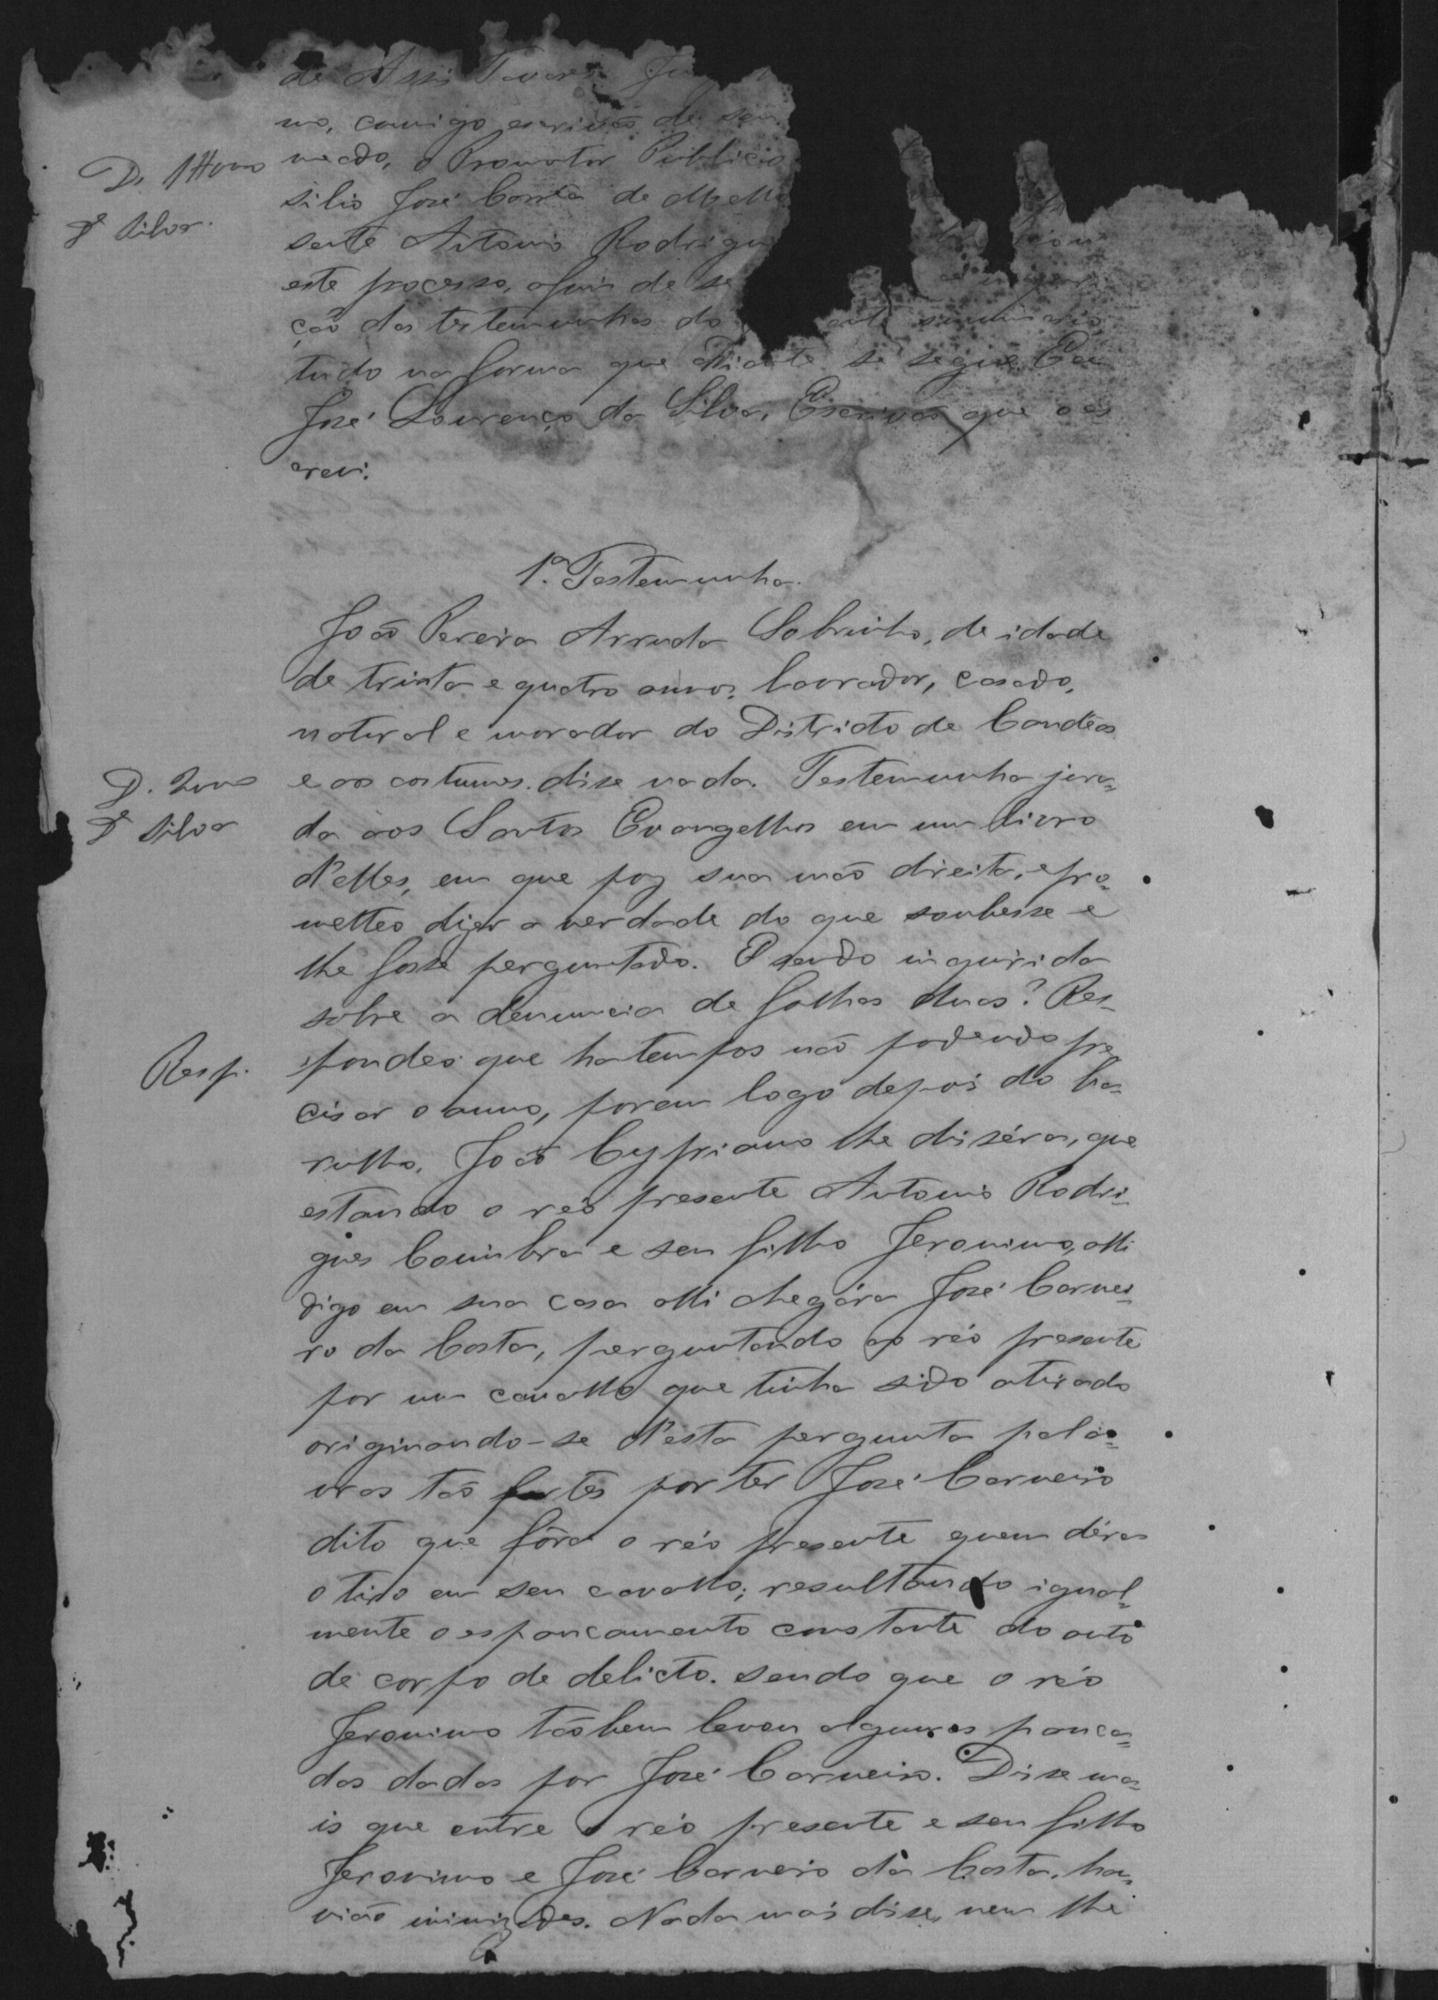 de Assis Tavares
mo, comigo escrivão de seu
meado, o Promotor Publico
silio José Corrêa de Mello
sente Antonio Rodrigu
este processo, afim de se
ção das testemunhas do summario,
tudo na forma que adiante se segue. Eu
José Lourenço da Silva, Escrivão que o es
crevi.
1ª Testemunha.
João Pereira Arruda Sobrinho, de idade
de trinta e quatro annos, lavrador, casado,
natural e morador do Districto de Candêas
D.
e aos costumes dise nada. Testemunha jura-
da Silva
da aos Santos Evangelhos em um livro
d'elles, em que poz sua mão direita, e pro-
metteo dizer a verdade do que soubesse e
lhe fosse perguntado. E sendo inquirida
sobre a denuncia de folhas duas? Res-
Resp.
pondeo que ha tempos não podendo pre-
cisar o anno, porem logo depois do ba-
rulho, João Cypriano lhe diséra, que
estando o réo presente Antonio Rodri-
gues Coimbra e seu filho Jeronimo, alli
digo em sua casa alli chegára José Carnei-
ro da Costa, perguntando ao réo presente
por um cavallo que tinha sido atirado
originando-se d'esta pergunta pala-
vras tão fortes por ter José Carneiro
dito que fôra o réo presente quem déra
o tiro em seu cavallo; resultando igual-
mente o espancamento constante do auto
de corpo de delicto. sendo que o réo
Jeronimo tãobem levou algumas panca-
das dadas por José Carneiro. Dise ma-
is que entre o réo presente e seu filho
Jeronimo e José Carneiro da Costa, ha-
vião inimizades. Nada mais dise, nem lhe